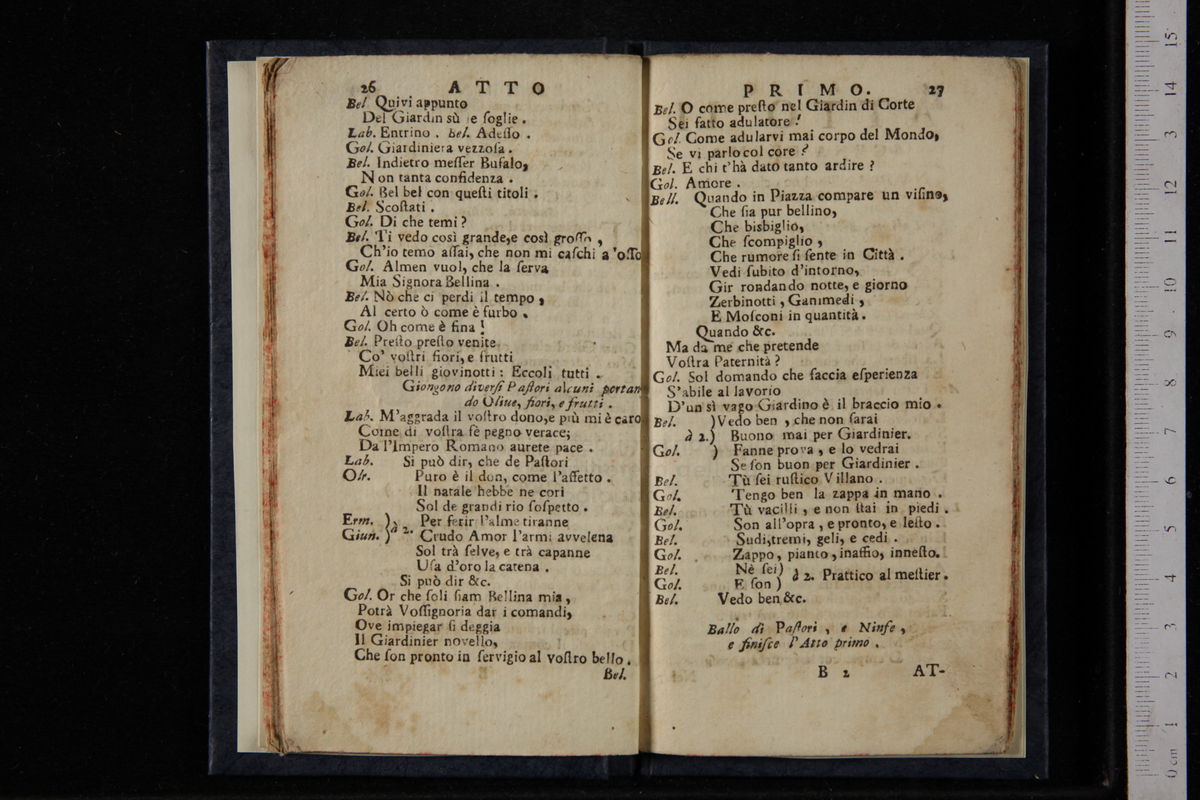 26 ATTO
Bel. Quivi appunto
Del Giardin sù le ſoglie.
Lab. Entrino. Bel. Adeſſo.
Gol. Giardiniera vezzoſa.
Bel. Indietro meſſer Bufalo,
Non tanta confidenza.
Gol. Bel bel con queſti titoli.
Bel. Scoſtati.
Gol. Di che temi?
Bel. Ti vedo così grande, e così groſſo,
Ch'io temo aſſai, che non mi caſchi a'oſſo
Gol. Almen vuol, che la ſerva
Mia Signora Bellina.
Bel. Nò che ci perdi il tempo,
Al certo ò come è furbo.
Gol. Oh come è fina!
Bel. Preſto preſto venite
Co' voſtri fiori, e frutti
Miei belli giovinotti: Eccoli tutti.
Giongono diverſi Paſtori alcuni portan
do Oliue, fiori, e frutti.
Lab. M'aggrada il voſtro dono, e più mi è caro
Come di voſtra fè pegno verace;
Da l'Impero Romano aurete pace.
Lab. Si può dir, che de Paſtori
Oſr. Puro è il don, come l'affetto.
Il natale hebbe ne cori
Sol de grandi rio ſoſpetto.
Erm. ) à Per ferir l'alme tiranne
Giun. ) 2. Crudo Amor l'armi avvelena
Sol trà ſelve, e trà capanne
Uſa d'oro la catena.
Si può dir &c.
Gol. Or che ſoli ſiam Bellina mia,
Potrà Voſſignoria dar i comandi,
Ove impiegar ſi deggia
Il Giardinier novello,
Che ſon pronto in ſervigio al voſtro bello.
Bel.
PRIMO. 27
Bel. O come preſto nel Giardin di Corte
Sei fatto adulatore!
Gol. Come adularvi mai corpo del Mondo,
Se vi parlo col core?
Bel. E chi t'hà dato tanto ardire?
Gol. Amore.
Bell. Quando in Piazza compare un viſino,
Che ſia pur bellino,
Che bisbiglio,
Che ſcompiglio,
Che rumore ſi ſente in Città.
Vedi ſubito d'intorno,
Gir rondando notte, e giorno
Zerbinotti, Ganimedi,
E Moſconi in quantità.
Quando &c.
Ma da me che pretende
Voſtra Paternità?
Gol. Sol domando che faccia eſperienza
S'abile al lavorio
D'un sì vago Giardino è il braccio mio.
Bel. )Vedo ben, che non ſarai
à 2.) Buono mai per Giardinier.
Gol. ) Fanne prova, e lo vedrai
Se ſon buon per Giardinier.
Bel. Tù ſei ruſtico Villano.
Gol. Tengo ben la zappa in mano.
Bel. Tù vacilli, e non ſtai in piedi.
Gol. Son all'opra, e pronto, e leſto.
Bel. Sudi, tremi, geli, e cedi.
Gol. Zappo, pianto, inaffio, inneſto.
Bel. Nè ſei)
à 2. Prattico al meſtier.
Gol. E ſon )
Bel. Vedo ben &c.
Ballo di Paſtori, e Ninfe,
e finiſce l'Atto primo.
B 2 AT-
0 cm 1 2 3 4 5 6 7 8 9 10 11 12 13 14 15